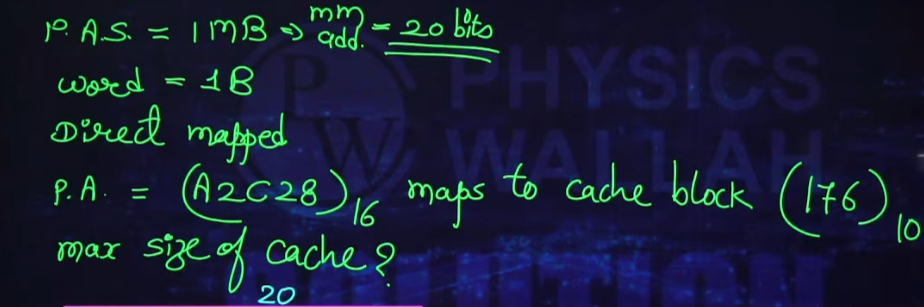 P.A.S. = 1MB ⇒ mm add. = 20 bits
word = 1B
Direct mapped
P.A. = (A2C28)16 maps to cache block (176)10
max size of cache?
20
PHYSICS
WALLAH